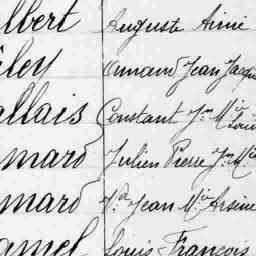 lbert Auguste Aimé
ley Armand Jean Jacqu
allais Constant Jn Mie Loui
mard Julien Pierre Jn Mie
mard Jean Mie Arsène
amel Louis François